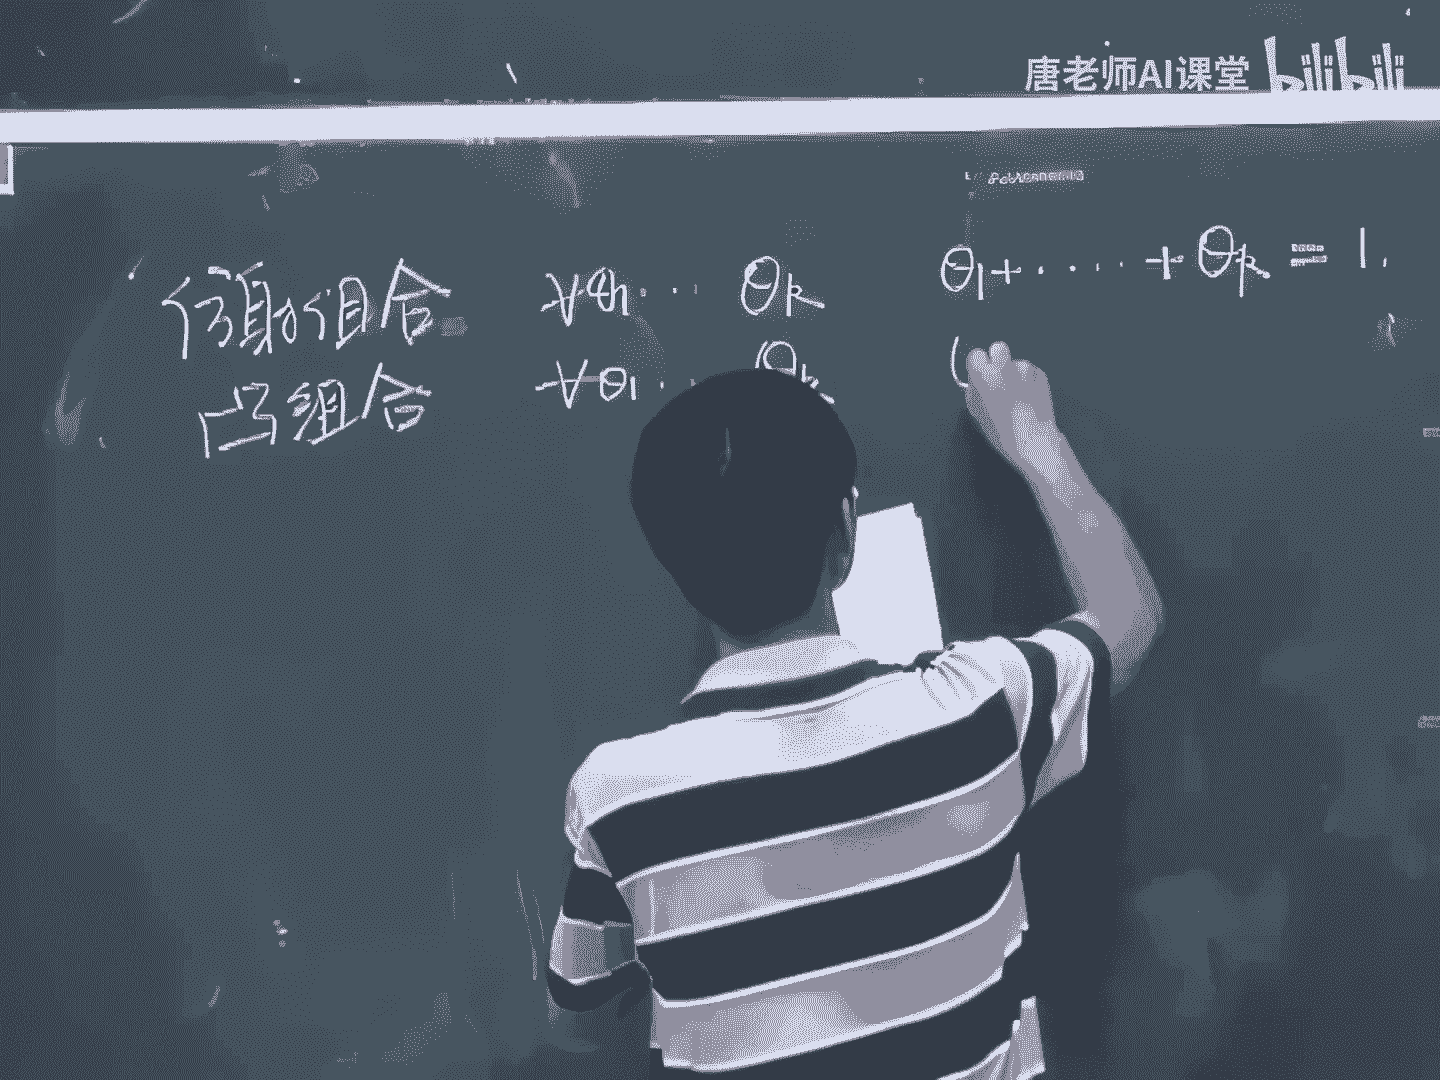 唐老师AI课堂 bilibili
仿射组合 ∀θ1... θk θ1+....+θk = 1.
凸组合 ∀θ1.. θk